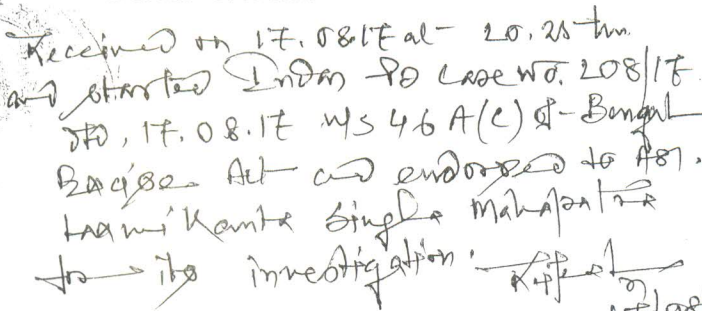 Received on 17.08.17 at 20.25 hrs
and started Indas PS Case No. 208/17
dtd, 17.08.17 u/s 46 A(c) of Bengal
Excise Act and endorsed to ASI.
Laxmi Kanta Singha Mahapatra
for its investigation.